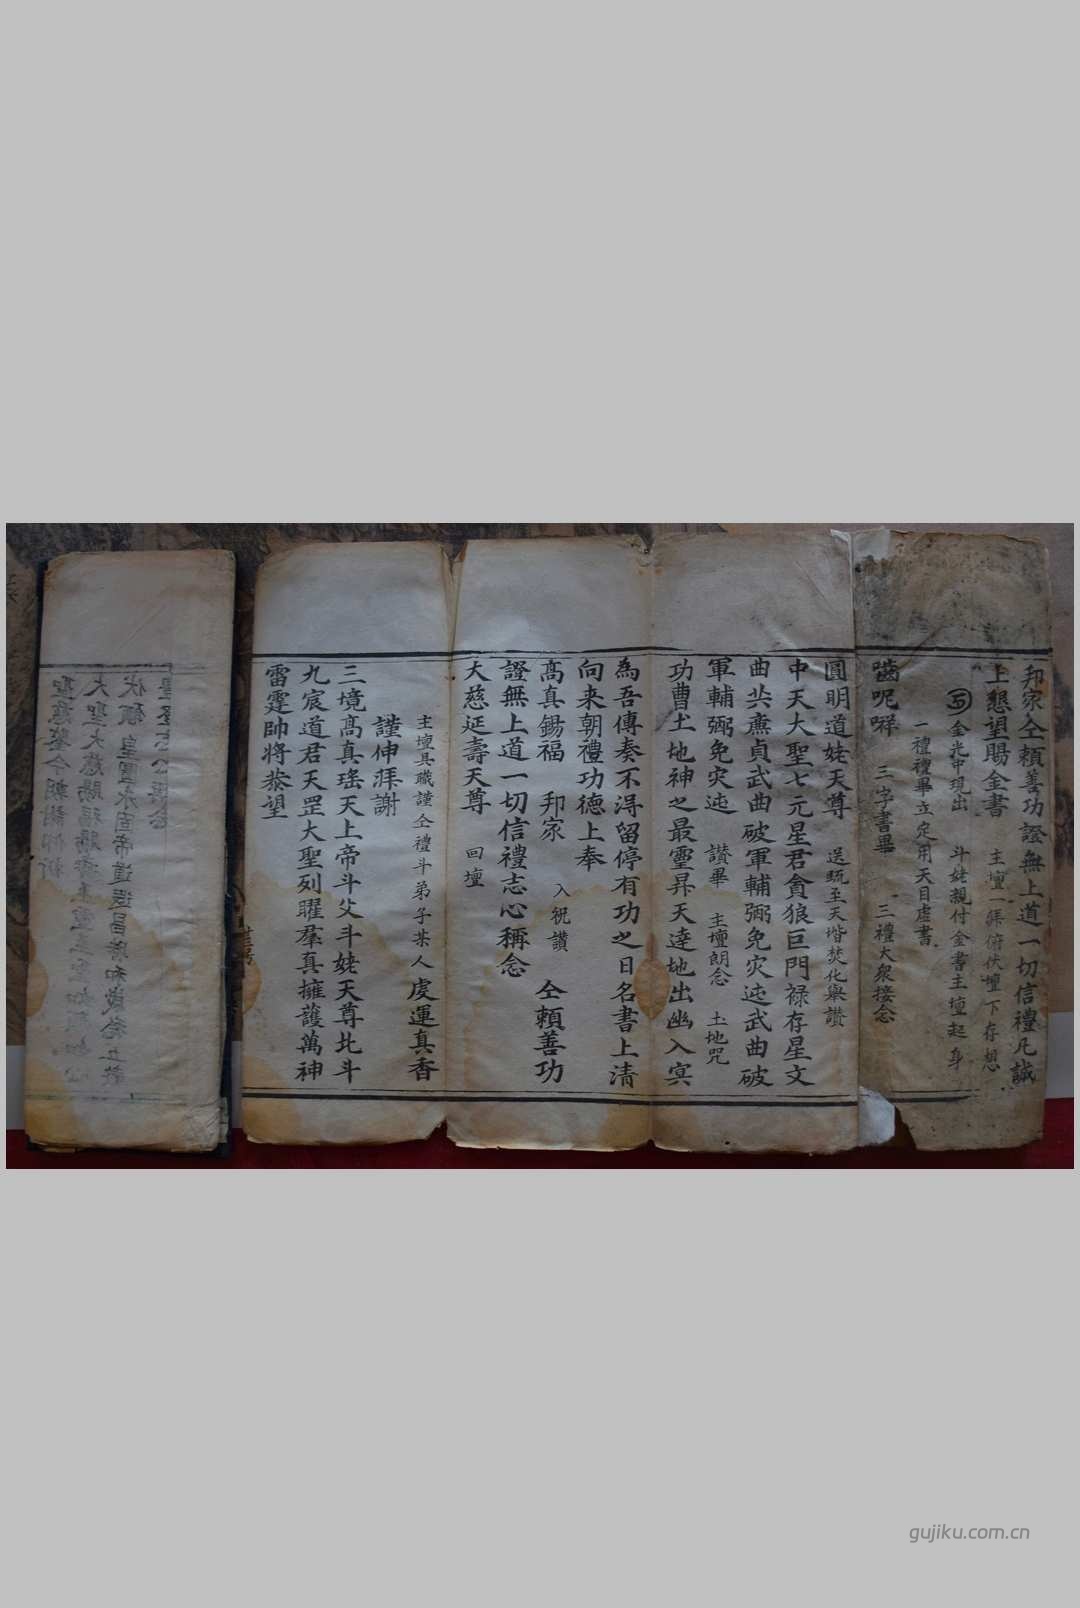 邦家仝頼善功證無上道一切信禮凡誠
上懇望賜金書 主壇一拜俯伏壇下存想
金光中現出 斗姥親付金書主壇起身
一禮禮畢立定用天目虛書
嚙呢𠺗 三字書畢 三禮大衆接念
圓明道姥天尊 送疏至天堦焚化舉讃
中天大聖七元星君貪狼巨門禄存星文
曲共亷貞武曲破軍輔弼免灾迍武曲破
軍輔弼免灾迍 讃畢 主壇朗念 土地咒
功曹土地神之最靈昇天達地出幽入冥
為吾傳奏不淂留停有功之日名書上清
向来朝禮功德上奉
髙真錫福 邦家 入祝讃 仝頼善功
證無上道一切信禮志心稱念
大慈延壽天尊 回壇
主壇具職謹仝禮斗弟子某人 虔運真香
謹伸拜謝
三境髙真瑤天上帝斗父斗姥天尊北斗
九宸道君天罡大聖列曜羣真擁護萬神
雷霆帥将恭望
gujiku.com.cn